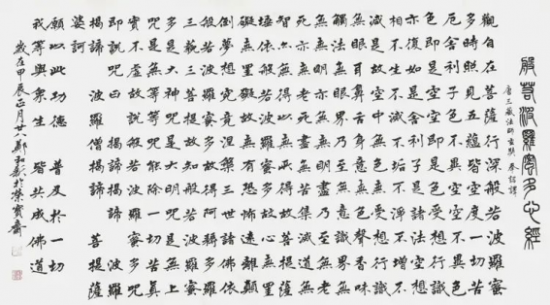 般若波羅蜜多心經
唐三藏法師玄奘奉詔譯
觀自在菩薩行深般若波羅蜜
多時照見五蘊皆空度一切苦
厄舍利子色不異空空不異色
色即是空空即是色受想行識
亦復如是舍利子是諸法空相
不生不滅不垢不淨不增不
減是故空中無色無受想行識
無眼耳鼻舌身意無色聲香味
觸法無眼界乃至無意識界
無無明亦無無明盡乃至無老
死亦無老死盡無苦集滅道無
智亦無得以無所得故菩提薩
埵依般若波羅蜜多故心無罣
礙無罣礙故無有恐怖遠離顛
倒夢想究竟涅槃三世諸佛依
般若波羅蜜多故得阿耨多羅
三藐三菩提故知般若波羅蜜
多是大神咒是大明咒是無上
咒是無等等咒能除一切苦真
實不虛故說般若波羅蜜多咒
即說咒曰 揭諦揭諦 波羅
揭諦 波羅僧揭諦 菩提薩
婆訶
願以此功德 普及於一切
我等與眾生 皆共成佛道
歲在甲辰正月廿八鄭和新於榮寶齋